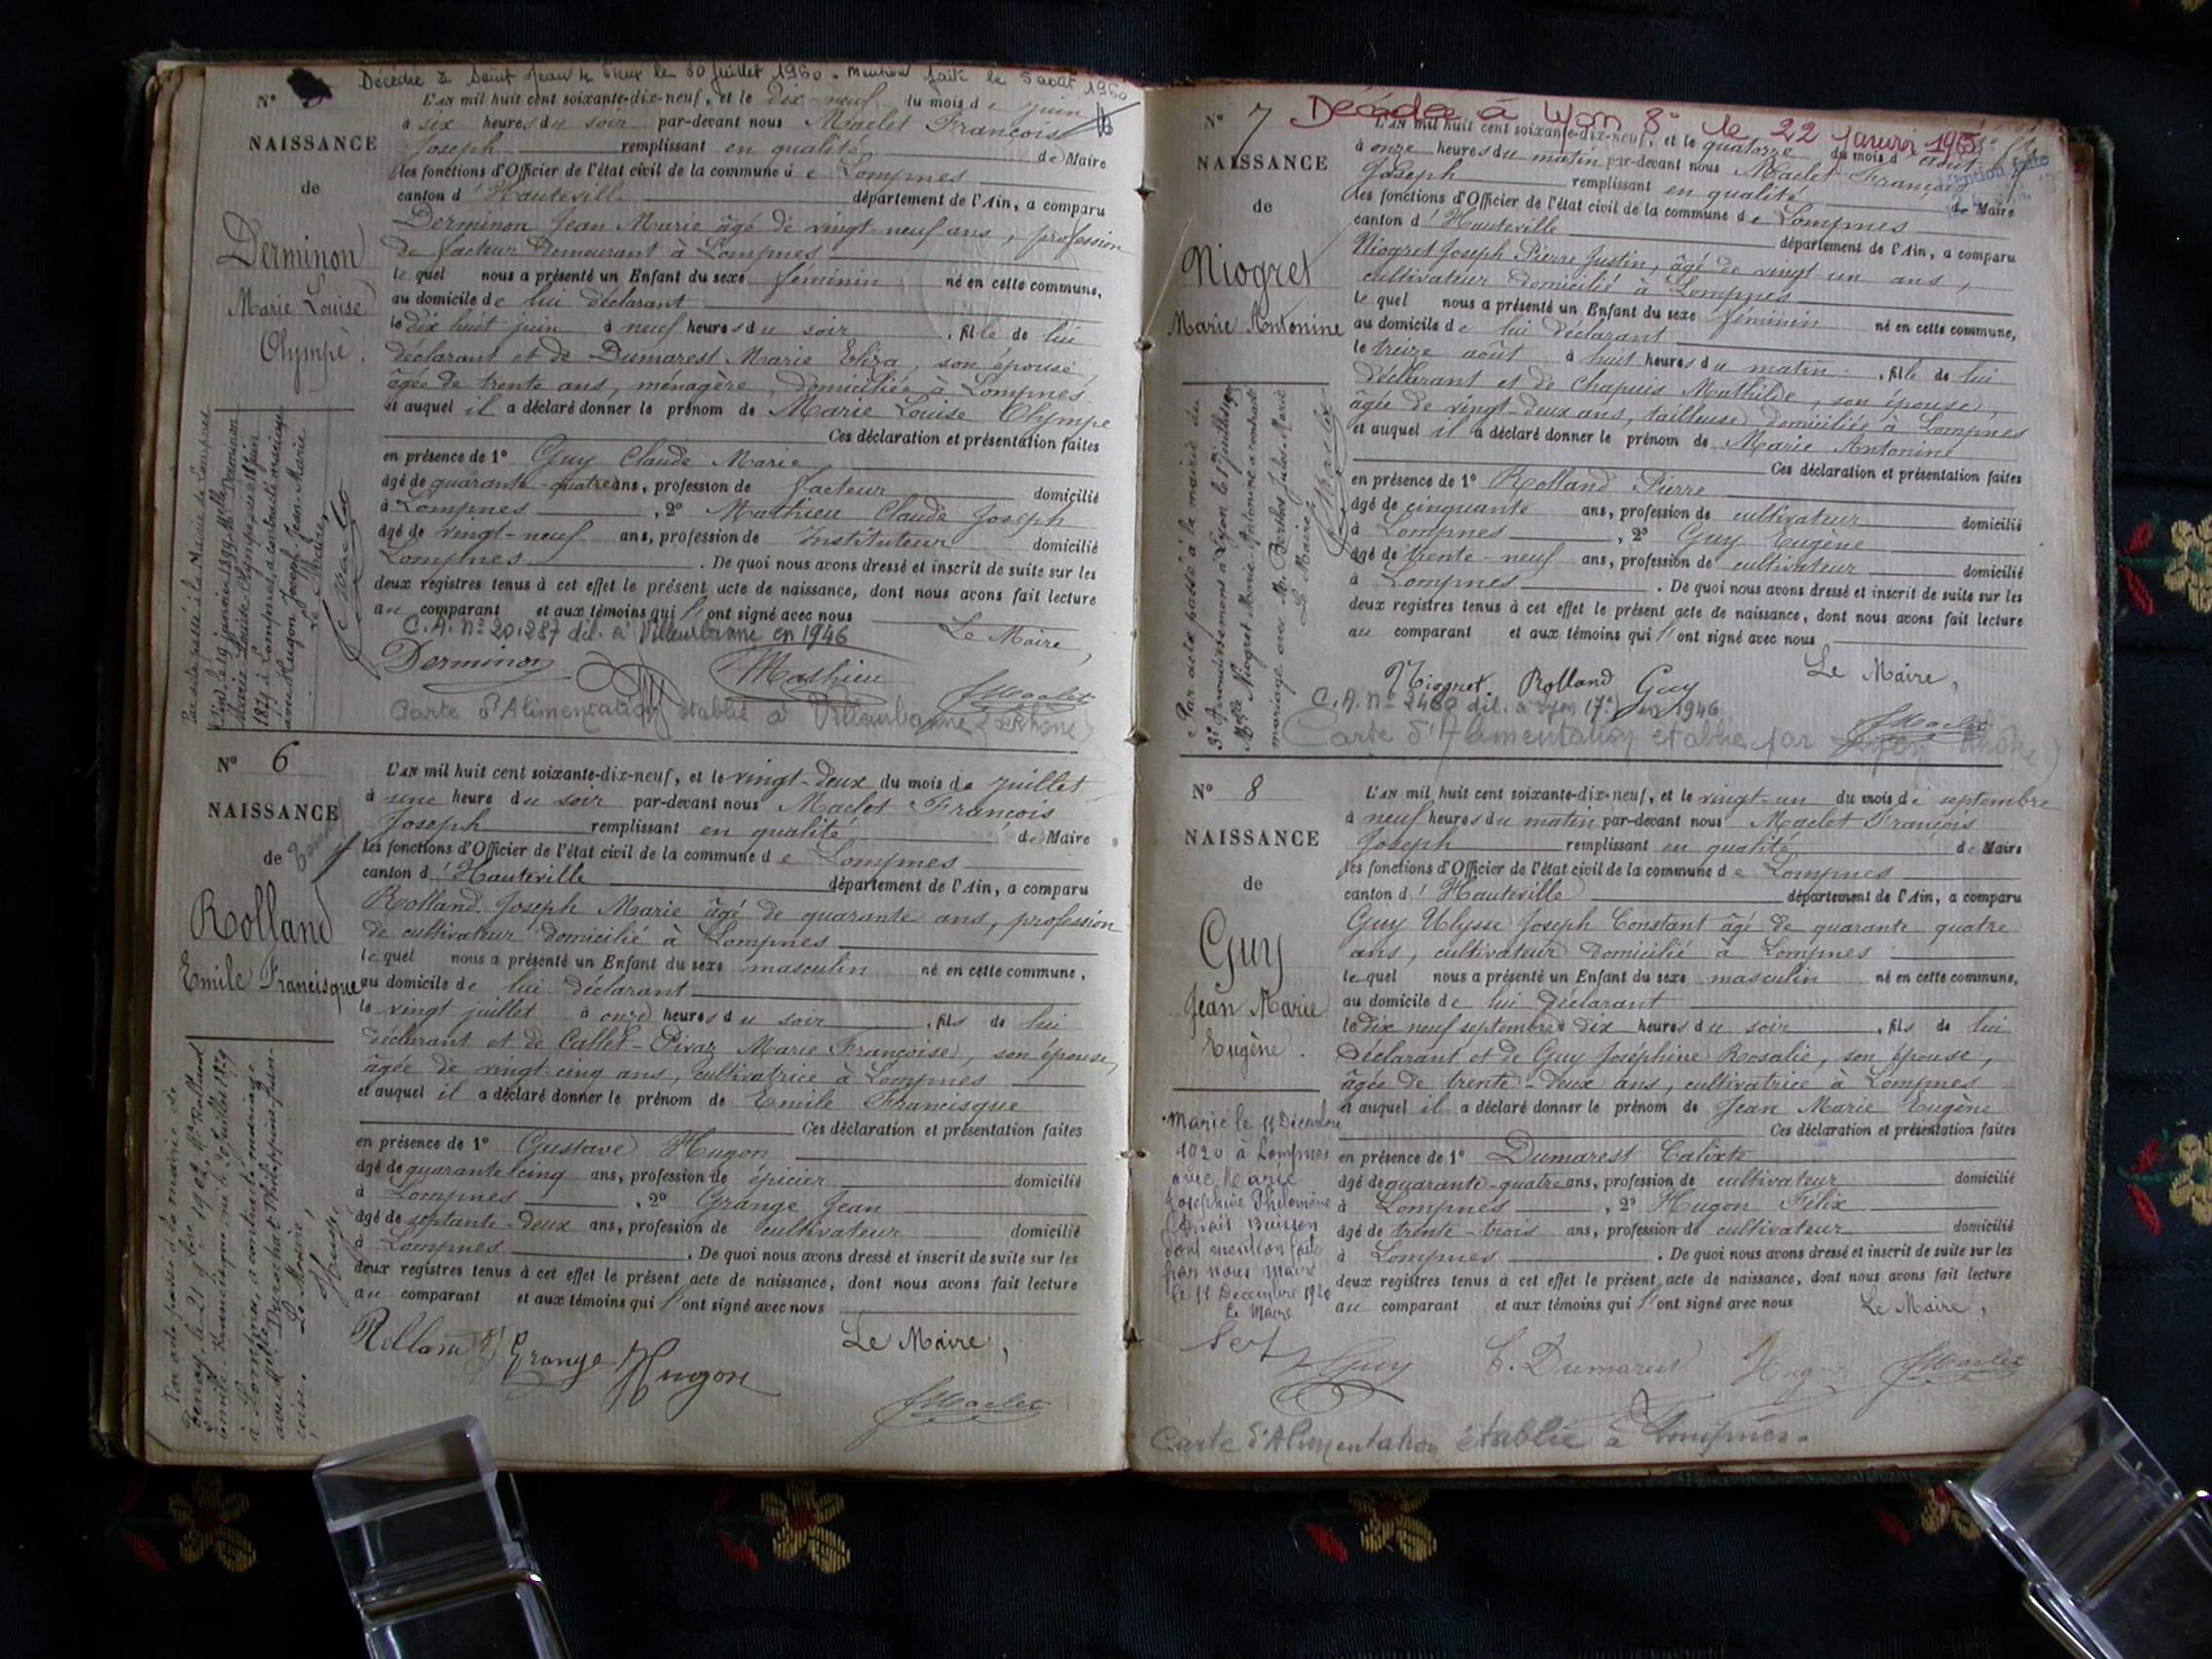 Décédée à Saint Jean le Vieux le 30 juillet 1960. Mention faite le 5 août 1960
N°
NAISSANCE
de
Derminon
Marie Louise
Olympe.
L'AN mil huit cent soixante-dix-neuf, et le dix-neuf du mois de juin
à six heures du soir par-devant nous Maclet François
Joseph remplissant en qualité de Maire
les fonctions d'Officier de l'état civil de la commune de Lompnes
canton d'Hauteville département de l'Ain, a comparu
Derminon Jean Marie âgé de vingt-neuf ans, profession
de facteur demeurant à Lompnes
lequel nous a présenté un Enfant du sexe féminin né en cette commune,
au domicile de lui déclarant
le dix huit juin à neuf heures du soir, fille de lui
déclarant et de Dumarest Marie Eliza, son épouse,
âgée de trente ans, ménagère, domiciliée à Lompnes
et auquel il a déclaré donner le prénom de Marie Louise Olympe
Ces déclaration et présentation faites
en présence de 1° Guy Claude Marie
âgé de quarante-quatre ans, profession de facteur domicilié
à Lompnes, 2° Mathieu Claude Joseph
âgé de vingt-neuf ans, profession de Instituteur domicilié
Lompnes. De quoi nous avons dressé et inscrit de suite sur les
deux registres tenus à cet effet le présent acte de naissance, dont nous avons fait lecture
au comparant et aux témoins qui l'ont signé avec nous
C.A. N° 20.287 dél. à Villeurbanne en 1946
Le Maire,
Derminon Mathieu
JMaclet
Carte d'Alimentation établie à Villeurbanne (Rhône)
Par acte passé à la Mairie de Lompnes
(Ain), le 19 janvier 1899, Melle Derminon
Marie Louise Olympe, née le 18 juin
1879 à Lompnes, a contracté mariage
avec Hugon Joseph Jean Marie.
Le Maire,
JMaclet
N° 6
NAISSANCE
de
Rolland
Emile Francisque
L'AN mil huit cent soixante-dix-neuf, et le vingt-deux du mois de juillet
à une heure du soir par-devant nous Maclet François
Joseph remplissant en qualité de Maire
les fonctions d'Officier de l'état civil de la commune de Lompnes
canton d'Hauteville département de l'Ain, a comparu
Rolland Joseph Marie âgé de quarante ans, profession
de cultivateur domicilié à Lompnes
lequel nous a présenté un Enfant du sexe masculin né en cette commune,
au domicile de lui déclarant
le vingt juillet à onze heures du soir, fils de lui
déclarant et de Callet-Pivaz Marie Françoise, son épouse,
âgée de vingt-cinq ans, cultivatrice à Lompnes
et auquel il a déclaré donner le prénom de Emile Francisque
Ces déclaration et présentation faites
en présence de 1° Gustave Hugon
âgé de quarante cinq ans, profession de épicier domicilié
à Lompnes, 2° Grange Jean
âgé de septante-deux ans, profession de cultivateur domicilié
à Lompnes. De quoi nous avons dressé et inscrit de suite sur les
deux registres tenus à cet effet le présent acte de naissance, dont nous avons fait lecture
au comparant et aux témoins qui l'ont signé avec nous
Le Maire,
Rolland Grange Hugon
JMaclet
Par acte passé à la mairie de
Tenay, le 21 9bre 1902, Mr Rolland
Emile-Francisque, né le 20 juillet 1879
à Lompnes, a contracté mariage
avec Melle Durochat Philippine Fran-
çoise. Le Maire,
N° 7
Décédée à Lyon 8° le 22 janvier
NAISSANCE
de
Niogret
Marie Antonine
L'AN mil huit cent soixante-dix-neuf, et le quatorze du mois d'août
à onze heures du matin par-devant nous Maclet François
Joseph remplissant en qualité de Maire
les fonctions d'Officier de l'état civil de la commune de Lompnes
canton d'Hauteville département de l'Ain, a comparu
Niogret Joseph Pierre Justin, âgé de vingt un ans,
cultivateur domicilié à Lompnes
lequel nous a présenté un Enfant du sexe féminin né en cette commune,
au domicile de lui déclarant
le treize août à huit heures du matin, fille de lui
déclarant et de Chapuis Mathilde, son épouse,
âgée de vingt-deux ans, tailleuse domiciliée à Lompnes
et auquel il a déclaré donner le prénom de Marie Antonine
Ces déclaration et présentation faites
en présence de 1° Rolland Pierre
âgé de cinquante ans, profession de cultivateur domicilié
à Lompnes, 2° Guy Eugène
âgé de trente-neuf ans, profession de cultivateur domicilié
à Lompnes. De quoi nous avons dressé et inscrit de suite sur les
deux registres tenus à cet effet le présent acte de naissance, dont nous avons fait lecture
au comparant et aux témoins qui l'ont signé avec nous
Le Maire,
Niogret. Rolland Guy
C.A. N° 2460 dél. à Lyon (7e) en 1946
JMaclet
Carte d'Alimentation établie par Lyon (Rhône)
Par acte passé à la mairie du
3e Arrondissement à Lyon le
Melle Niogret Marie Antonine a contracté
mariage avec Mr Berthet Jules-Marie
Le Maire,
JMaclet
N° 8
NAISSANCE
de
Guy
Jean Marie
Eugène.
L'AN mil huit cent soixante-dix-neuf, et le vingt-un du mois de septembre
à neuf heures du matin par-devant nous Maclet François
Joseph remplissant en qualité de Maire
les fonctions d'Officier de l'état civil de la commune de Lompnes
canton d'Hauteville département de l'Ain, a comparu
Guy Ulysse Joseph Constant âgé de quarante quatre
ans, cultivateur domicilié à Lompnes
lequel nous a présenté un Enfant du sexe masculin né en cette commune,
au domicile de lui déclarant
le dix neuf septembre à dix heures du soir, fils de lui
déclarant et de Guy Joséphine Rosalie, son épouse,
âgée de trente-deux ans, cultivatrice à Lompnes
et auquel il a déclaré donner le prénom de Jean Marie Eugène
Ces déclaration et présentation faites
en présence de 1° Dumarest Calixte
âgé de quarante-quatre ans, profession de cultivateur domicilié
à Lompnes, 2° Hugon Félix
âgé de trente-trois ans, profession de cultivateur domicilié
à Lompnes. De quoi nous avons dressé et inscrit de suite sur les
deux registres tenus à cet effet le présent acte de naissance, dont nous avons fait lecture
au comparant et aux témoins qui l'ont signé avec nous
Le Maire,
Marié le 11 Décembre
1920 à Lompnes
avec Marie
Joséphine Philomène
Anaïs Buisson
dont mention faite
par nous maire
le 11 Décembre 1920
Le Maire
Guy C. Dumarest Hugon JMaclet
Carte d'Alimentation établie à Lompnes.